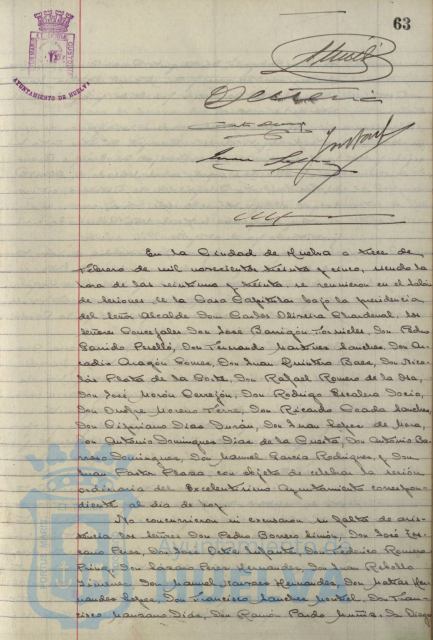 63
AYUNTAMIENTO DE HUELVA
En la Ciudad de Huelva a trece de
Febrero de mil novecientos treinta y cinco, siendo la
hora de las veintiuna y treinta se reunieron en el Salón
de sesiones de la Casa Capitular bajo la presidencia
del Señor Alcalde Don Carlos Oliveira Chardenal, los
señores Concejales Don José Barrigón Fornieles, Don Pedro
Garrido Perelló, Don Fernando Martínez Sánchez, Don Ar-
cadio Aragón Gómez, Don Juan Quintero Báez, Don Nico-
lás Prota de la Corte, Don Rafael Romero de la Osa,
Don José Morón Cerrejón, Don Rodrigo Escalera Socio,
Don Onofre Moreno Terre, Don Ricardo Ocada Sánchez,
Don Cipriano Días Durán, Don Juan López de Mora,
Don Antonio Domínguez Díaz de la Cuesta, Don Antonio Ba-
rroso Domínguez, Don Manuel García Rodríguez, y Don
Juan Pastor Plaza con objeto de celebrar la sesión
ordinaria del Excelentísimo Ayuntamiento correspon-
diente al día de hoy.
No concurrieron ni excusaron su falta de asis-
tencia los señores Don Pedro Borrero Limón, Don José
Pérez, Don José Ortiz Infante, Don Federico Romero
Don Lázaro Pérez Hernández, Don Juan Rebollo
Jiménez, Don Manuel Navarro Hernández, Don Matías Her-
nández López, Don Francisco Sánchez Montiel, Don Fran-
cisco Manzano Díaz, Don Ramón Pardo Muñiz, Don Diego